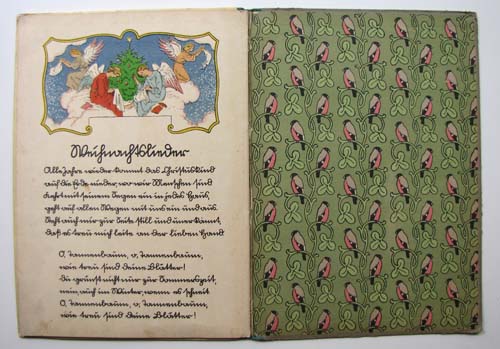 Weihnachtslieder
Alle Jahre wieder kommt das Christuskind
auf die Erde nieder, wo wir Menschen sind
Kehrt mit seinem Segen ein in jedes Haus,
geht auf allen Wegen mit uns ein und aus.
Geht auch mir zur Seite still und unerkannt,
daß es treu mich leite an der lieben Hand
O, Tannenbaum, o, Tannenbaum,
wie treu sind deine Blätter!
Du grünst nicht nur zur Sommerszeit,
nein, auch im Winter, wenn es schneit
O, Tannenbaum, o, Tannenbaum,
wie treu sind deine Blätter!